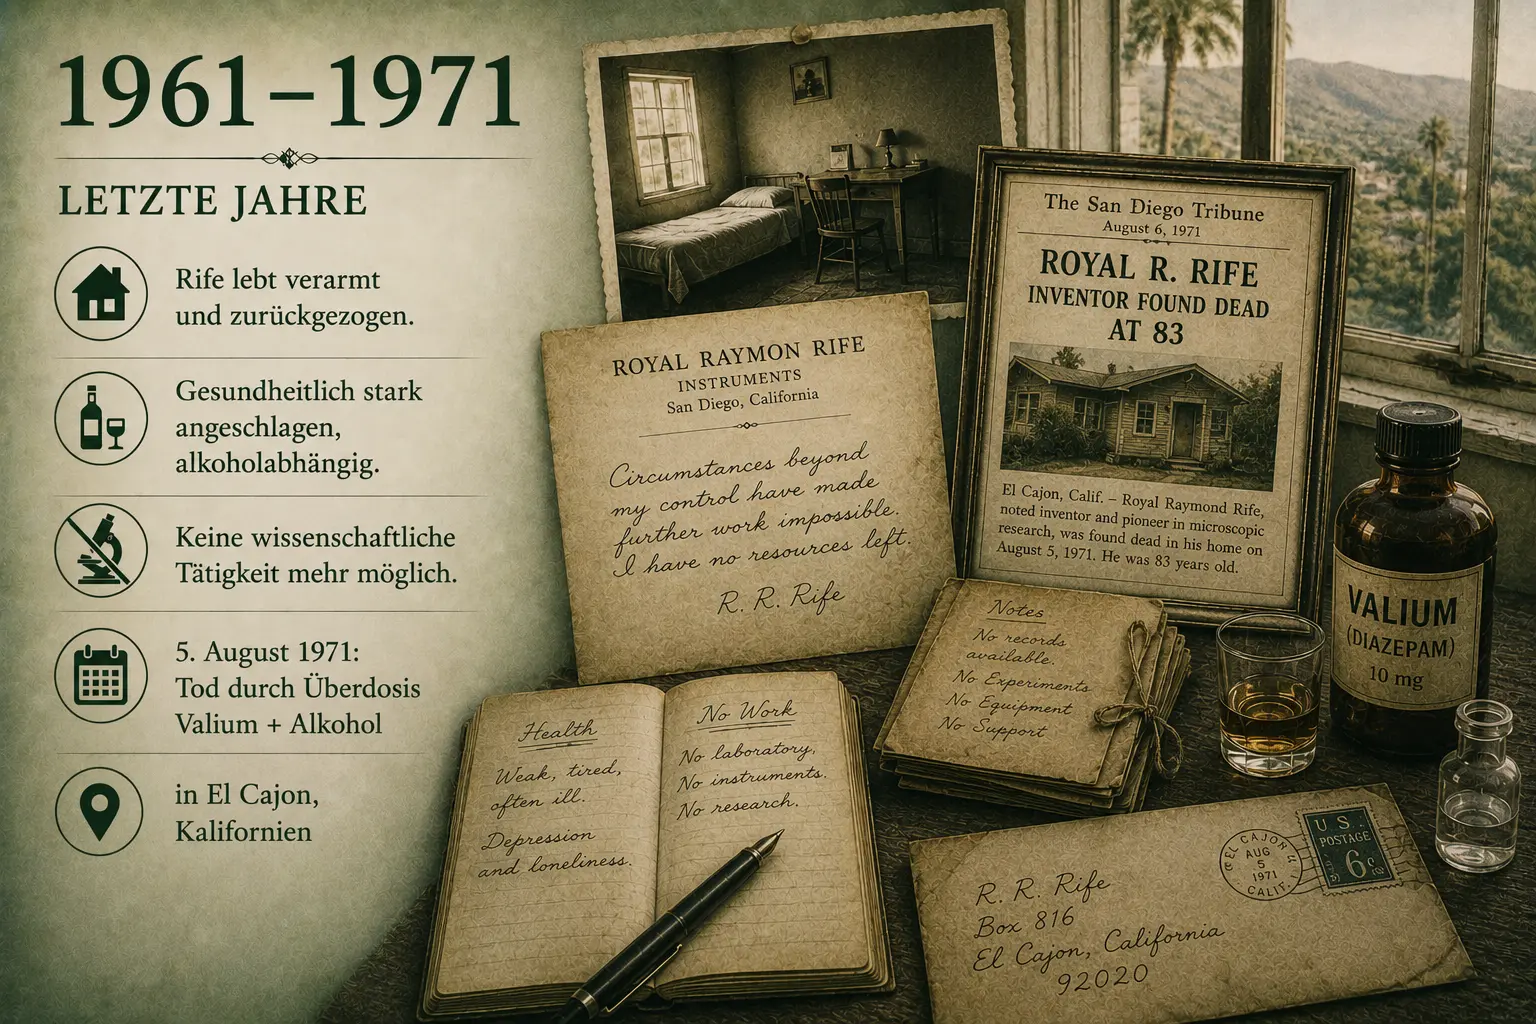 1961–1971
LETZTE JAHRE
Rife lebt verarmt
und zurückgezogen.
Gesundheitlich stark
angeschlagen,
alkoholabhängig.
Keine wissenschaftliche
Tätigkeit mehr möglich.
5. August 1971:
Tod durch Überdosis
Valium + Alkohol
in El Cajon,
Kalifornien
ROYAL RAYMON RIFE
INSTRUMENTS
San Diego, California
Circumstances beyond
my control have made
further work impossible.
I have no resources left.
R. R. Rife
The San Diego Tribune
August 6, 1971
ROYAL R. RIFE
INVENTOR FOUND DEAD
AT 83
El Cajon, Calif. – Royal Raymond Rife,
noted inventor and pioneer in microscopic
research, was found dead in his home on
August 5, 1971. He was 83 years old.
Notes
No records
available.
No Experiments
No Equipment
No Support
VALIUM
(DIAZEPAM)
10 mg
Health
Weak, tired,
often ill.
Depression
and loneliness.
No Work
No laboratory,
No instruments.
No research.
R. R. Rife
Box 816
El Cajon, California
92020
EL CAJON
AUG
5
1971
CALIF.
U.S.
POSTAGE
6c